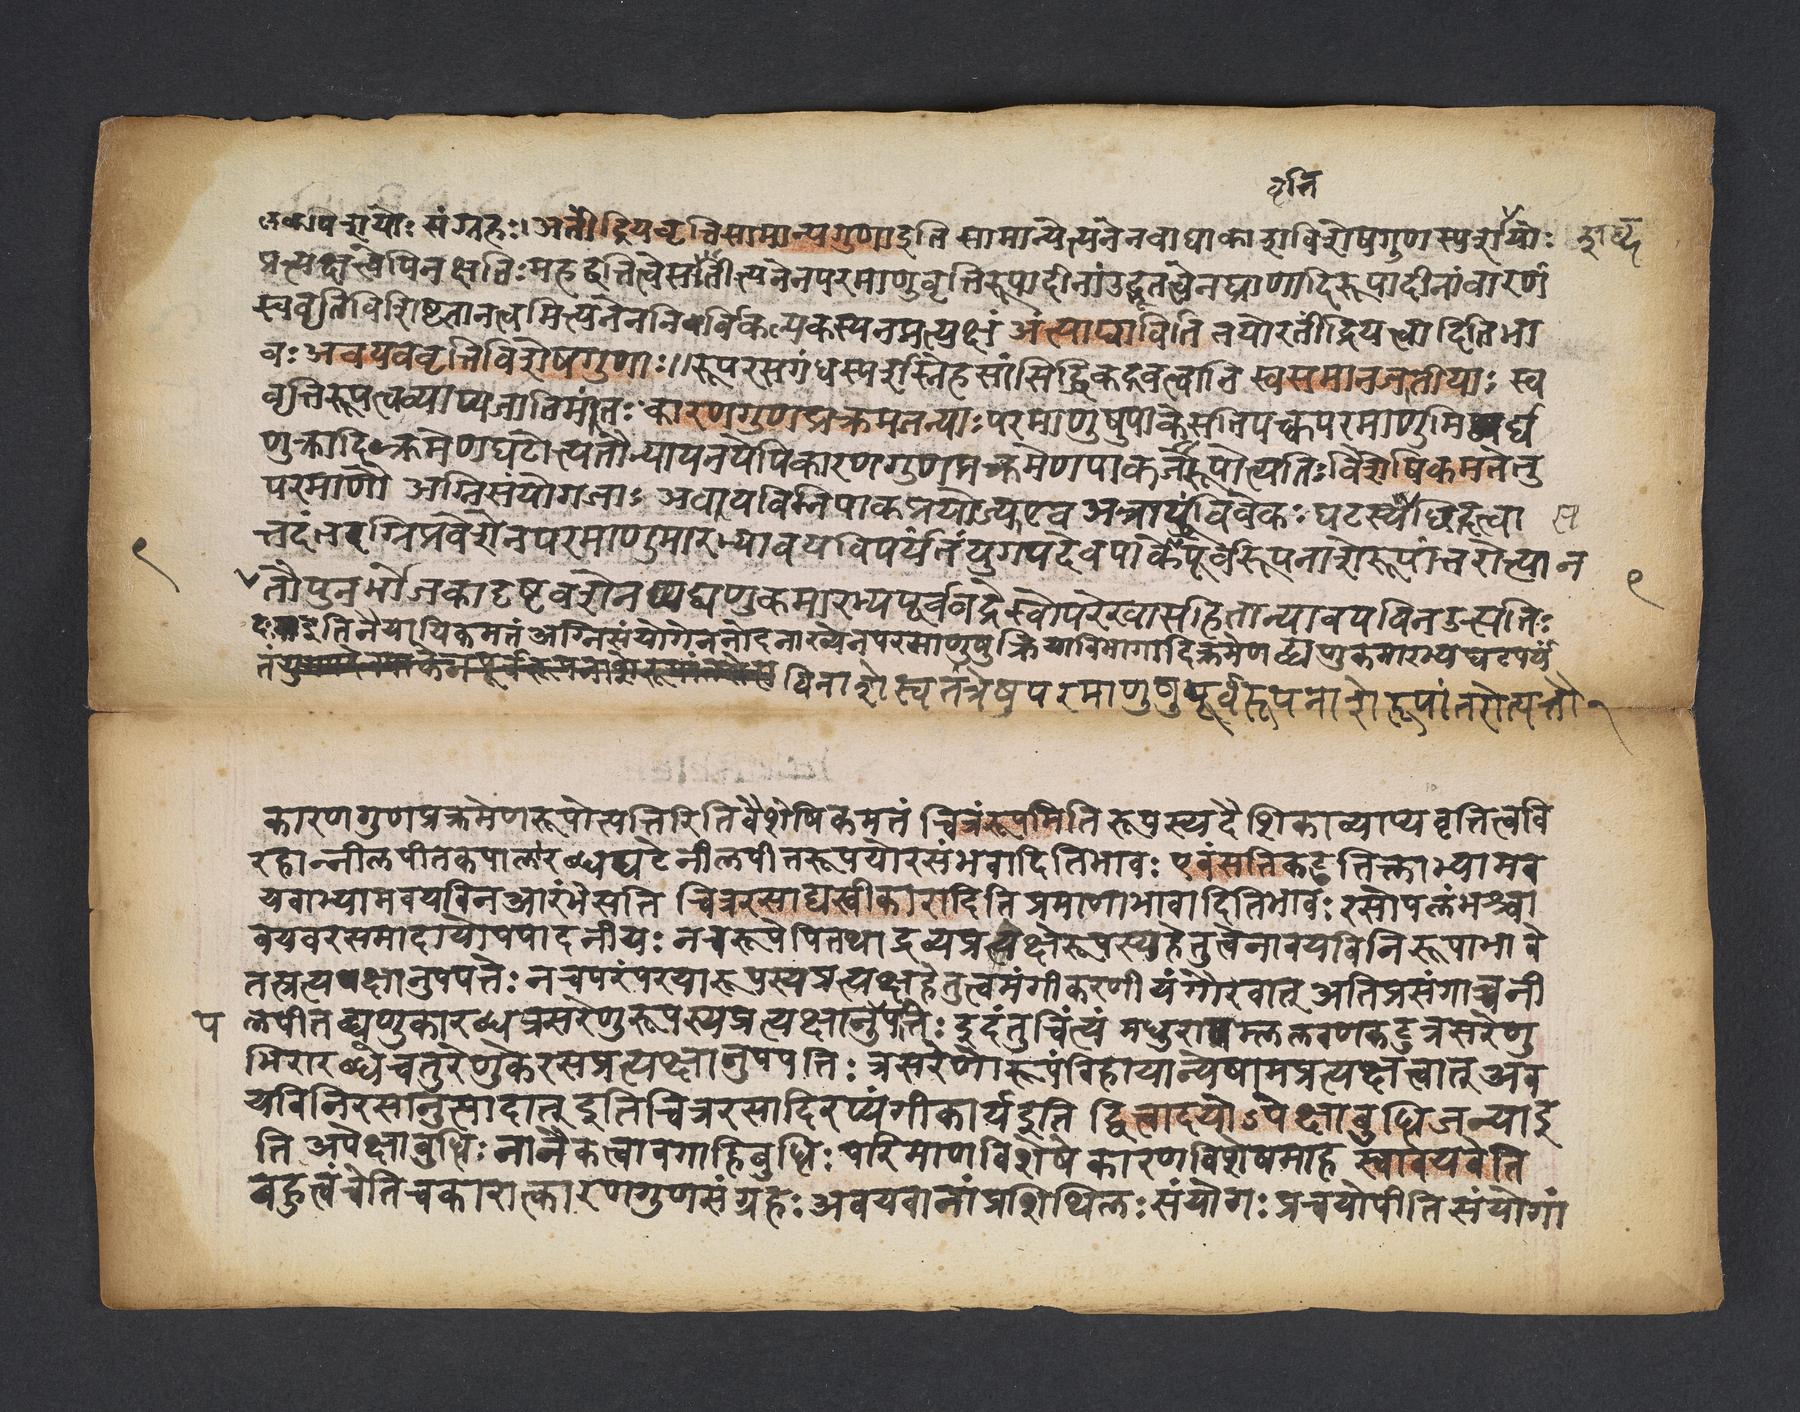 वृत्ति
पेशयोः संग्रहः। अतींद्रियवृत्तिसामान्यगुणाइति सामान्येत्यनेनवाधाकाशविशेषगुणस्पर्शयोः शब्द
प्रत्यक्षत्वेपिनक्षतिः महद्वृत्तित्वेसतीत्यनेनपरमाणुवृत्तिरूपादीनांउद्भूतत्वेनघ्राणादिरूपादीनांवारणं
स्ववृत्तिविशिष्टज्ञानत्वमित्यनेननिर्विकल्पकस्यनप्रत्यक्षं अंत्याघाविति तयोरतींद्रियत्वादितिभा
वः अवयववृत्तिविशेषगुणाः॥रूपरसगंधस्पर्शस्नेहसांसिद्धिकद्रवत्वानि स्वसमानजातीयाः स्व
वृत्तिरूपत्वव्याप्यजातिमंतः कारणगुणप्रक्रमजन्याः परमाणुषुपाकेसतिपक्वपरमाणुभिर्द्व्य
णुकादिक्रमेणघटोत्पत्तौन्यायनयेपिकारणगुणप्रक्रमेणपाकजरूपोत्पत्तिः वैशेषिकमतेतु
परमाणौ अग्निसंयोगजाः अवयविनिपाकप्रयोज्यएव अत्रायंविवेकः घटस्यछिद्रत्वा स
त्तदंतरग्निप्रवेशेनपरमाणुमारभ्यावयविपर्यंतंयुगपदेवपाकेपूर्वरूपनाशेरूपांतरोत्पान
तौपुनर्भोजकादृष्टवशेनद्व्यणुकमारभ्यपूर्ववदेवस्वोपरेखासहितान्यावयविनउत्पत्तिः
इतिनैयायिकमतं अग्निसंयोगेननोदनाख्येनपरमाणुषुक्रियाविभागादिक्रमेणद्व्यणुकमारभ्यघटपर्यं
तं विनाशेस्वतंत्रेषुपरमाणुषुपूर्वरूपनाशेरूपांतरोत्पत्तौ
कारणगुणप्रक्रमेणरूपोत्पत्तिरितिवैशेषिकमतं चित्रंरूपमिति रूपस्यदैशिकाव्याप्यवृत्तित्ववि
रहान्नीलपीतकपालारब्धघटेनीलपीतरूपयोरसंभवादितिभावः एवंसतिकटुतिक्ताभ्यामव
यवाभ्यामवयविनआरंभेसति चित्ररसाद्यस्वीकारादिति प्रमाणाभावादितिभावः रसोपलंभश्चा
वयवरसमादायोपपादनीयः नचरूपेपितथा द्रव्यप्रत्यक्षेरूपस्यहेतुत्वेनावयविनिरूपाभावे
तत्प्रत्यक्षानुपपत्तेः नचपरंपरयारूपस्यप्रत्यक्षहेतुत्वमंगीकरणीयंगौरवात् अतिप्रसंगाच्चनी
प लपीतद्व्यणुकारब्धत्रसरेणुरूपस्यप्रत्यक्षानुपत्तेः इदंतुचिंत्यं मधुराम्ललवणकटुत्रसरेणु
भिरारब्धेचतुरणुकेरसप्रत्यक्षानुपपत्तिः त्रसरेणौरूपंविहायान्येषामप्रत्यक्षत्वात् अव
यविनिरसानुत्सादात् इतिचित्ररसादिरप्यंगीकार्यइति द्वित्वादयोऽपेक्षाबुद्धिजन्याइ
ति अपेक्षाबुद्धिः नानैकत्वावगाहिबुद्धिः परिमाणविशेषे कारणविशेषमाह स्वावयवेति
बहुत्वंचेतिचकारात्कारणगुणसंग्रहः अवयवानांप्रशिथिलः संयोगः प्रचयोपीति संयोगां